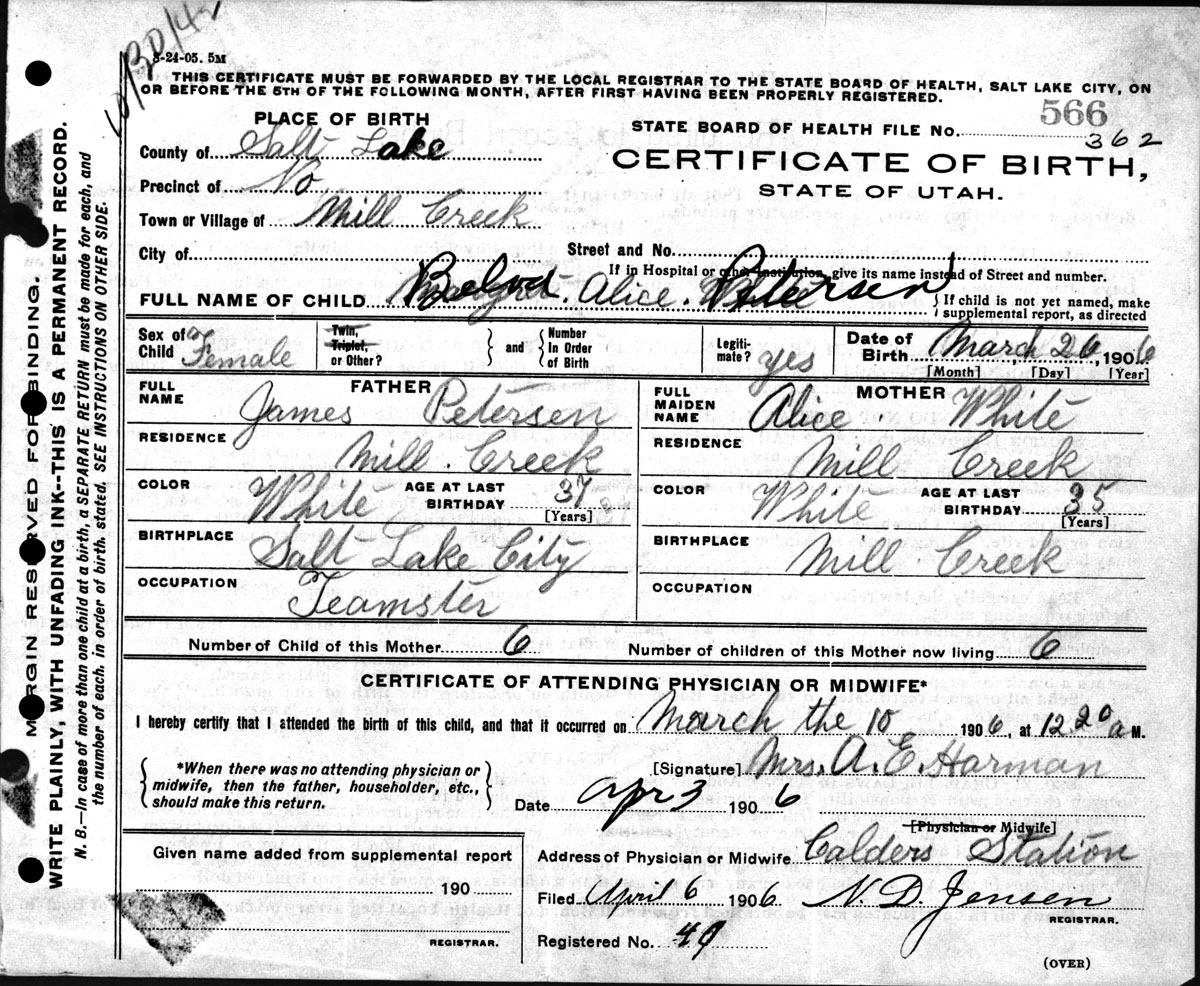 10/30/42
8-24-05. 5M
THIS CERTIFICATE MUST BE FORWARDED BY THE LOCAL REGISTRAR TO THE STATE BOARD OF HEALTH, SALT LAKE CITY, ON
OR BEFORE THE 5TH OF THE FOLLOWING MONTH, AFTER FIRST HAVING BEEN PROPERLY REGISTERED.
566
PLACE OF BIRTH
STATE BOARD OF HEALTH FILE No. 362
County of Salt Lake
CERTIFICATE OF BIRTH,
Precinct of No
STATE OF UTAH.
Town or Village of Mill Creek
City of
Street and No.
If in Hospital or other institution, give its name instead of Street and number.
FULL NAME OF CHILD Alice Petersen
If child is not yet named, make
supplemental report, as directed
Sex of Child Female
Twin, Triplet, or Other?
and
Number In Order of Birth
Legiti-mate? yes
Date of Birth March 26, 1906
[Month] [Day] [Year]
FATHER
FULL NAME James Petersen
MOTHER
FULL MAIDEN NAME Alice White
RESIDENCE Mill Creek
RESIDENCE Mill Creek
COLOR White AGE AT LAST BIRTHDAY 37 [Years]
COLOR White AGE AT LAST BIRTHDAY 35 [Years]
BIRTHPLACE Salt Lake City
BIRTHPLACE Mill Creek
OCCUPATION Teamster
OCCUPATION
Number of Child of this Mother 6
Number of children of this Mother now living 6
CERTIFICATE OF ATTENDING PHYSICIAN OR MIDWIFE*
I hereby certify that I attended the birth of this child, and that it occurred on March the 10 1906, at 12 20 a M.
*When there was no attending physician or
midwife, then the father, householder, etc.,
should make this return.
[Signature] Mrs. A. E. Harman
Date Apr 3 1906
[Physician or Midwife]
Given name added from supplemental report
190
REGISTRAR.
Address of Physician or Midwife Calders Station
Filed April 6 1906. N. D. Jensen
REGISTRAR.
Registered No. 49
(OVER)
MARGIN RESERVED FOR BINDING.
WRITE PLAINLY, WITH UNFADING INK--THIS IS A PERMANENT RECORD.
N. B.—In case of more than one child at a birth, a SEPARATE RETURN must be made for each, and
the number of each, in order of birth, stated. SEE INSTRUCTIONS ON OTHER SIDE.